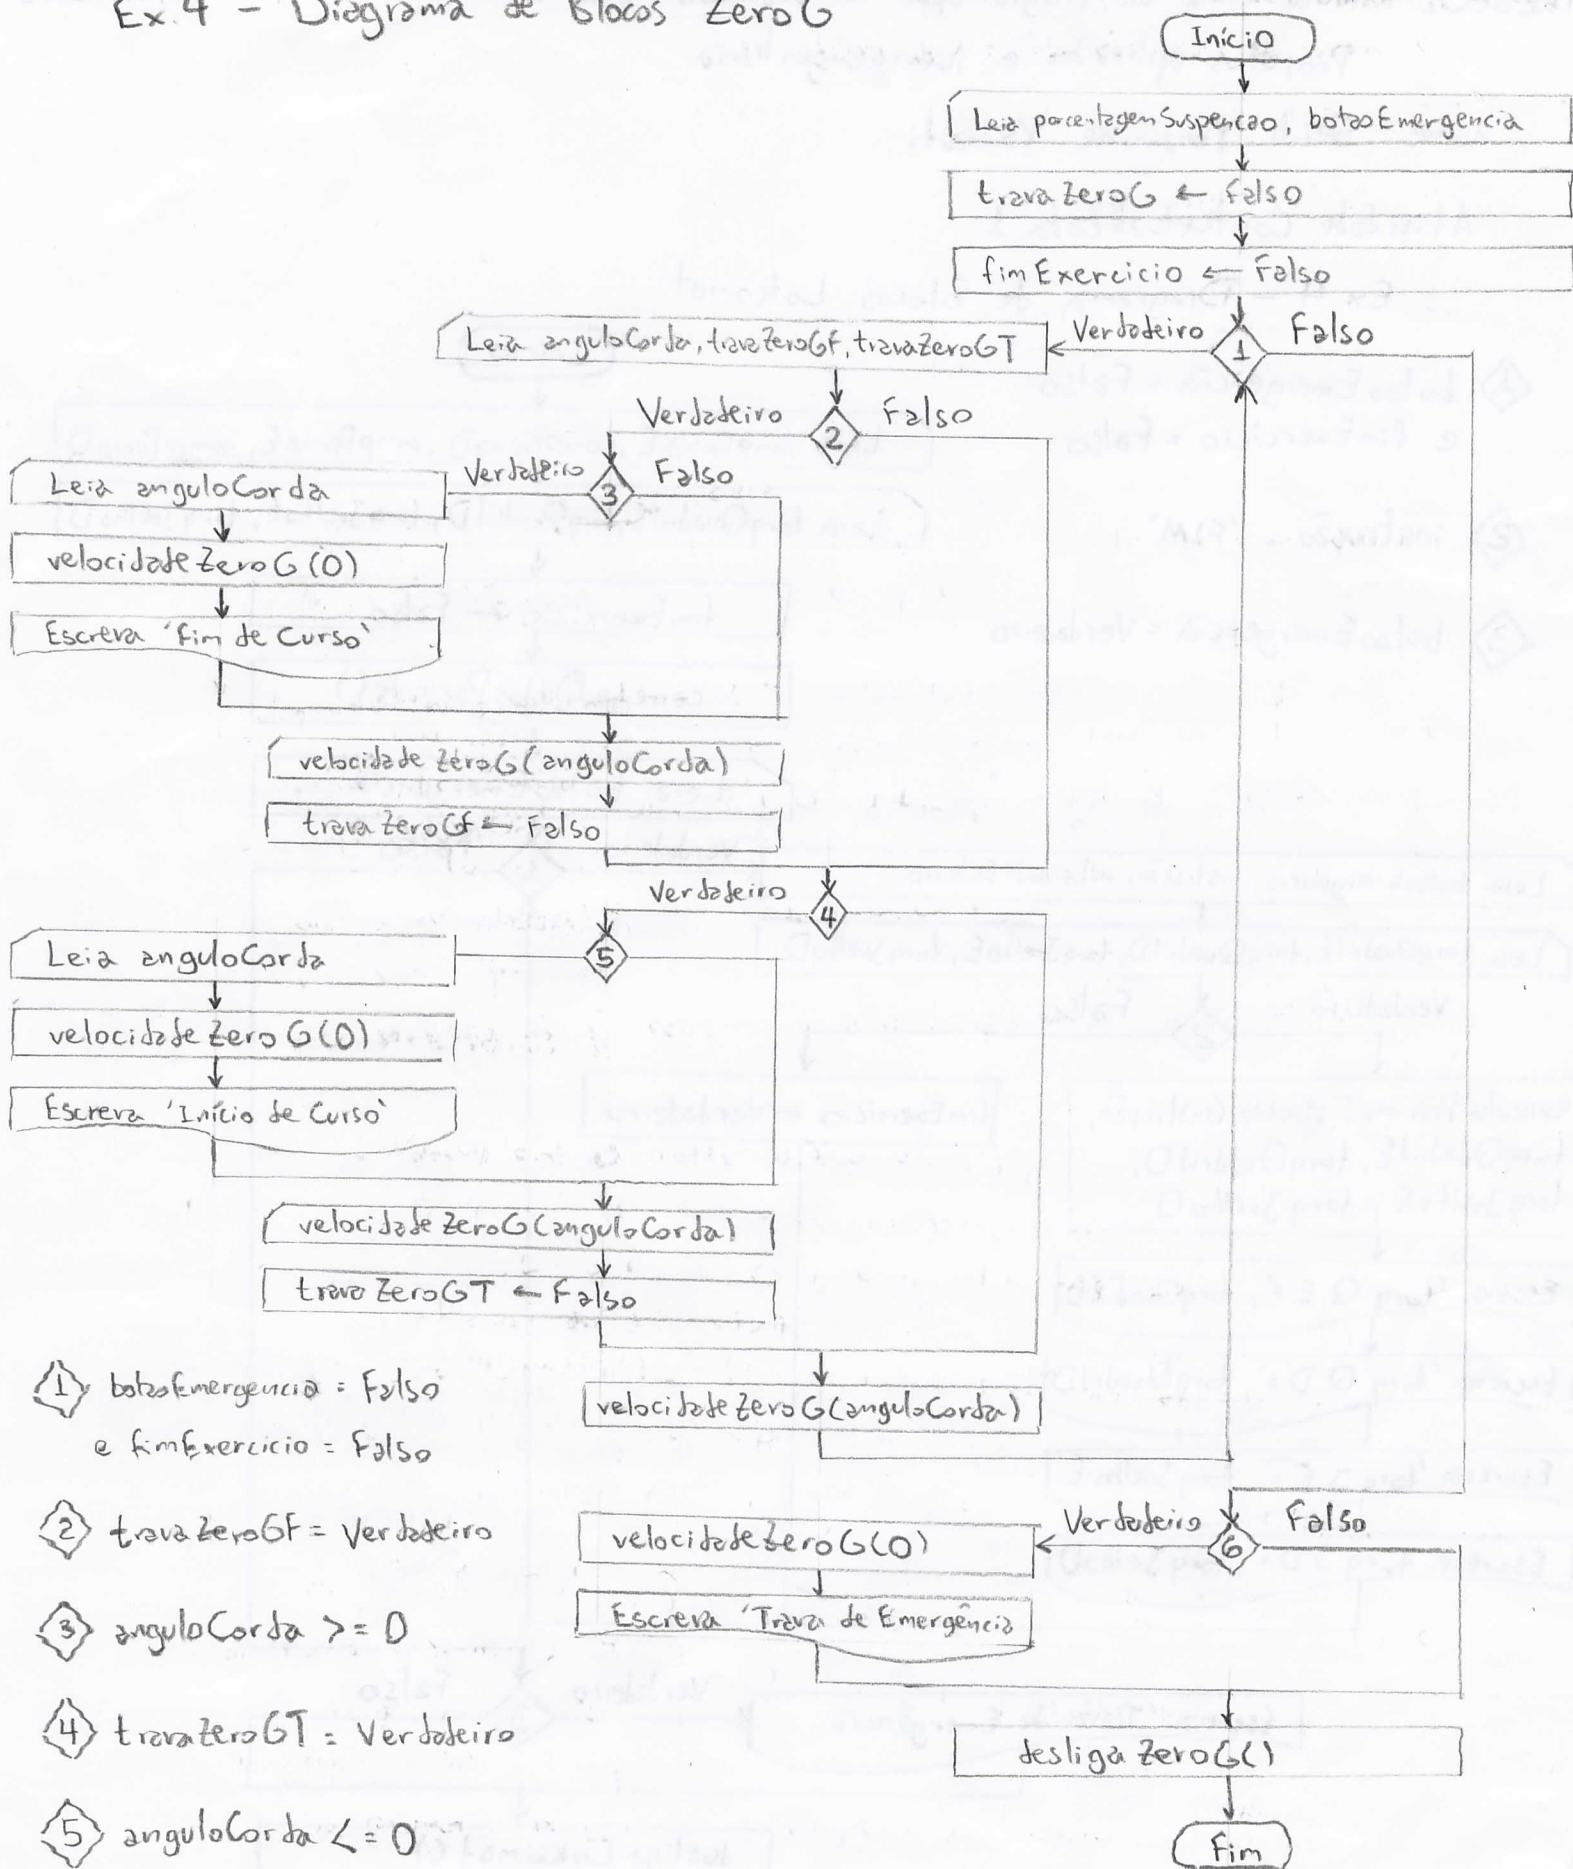 Ex. 4 - Diagrama de Blocos ZeroG
Início
Leia porcentagemSuspencao, botaoEmergencia
travaZeroG ← Falso
fimExercicio ← Falso
1
Verdadeiro
Falso
Leia anguloCorda, travaZeroGf, travaZeroGT
2
Verdadeiro
Falso
3
Verdadeiro
Falso
Leia anguloCorda
velocidadeZeroG(0)
Escreva 'Fim de Curso'
velocidadeZeroG(anguloCorda)
travaZeroGf ← Falso
4
Verdadeiro
5
Leia anguloCorda
velocidadeZeroG(0)
Escreva 'Início de Curso'
velocidadeZeroG(anguloCorda)
travaZeroGT ← Falso
velocidadeZeroG(anguloCorda)
6
Verdadeiro
Falso
velocidadeZeroG(0)
Escreva 'Trava de Emergência
desligaZeroG()
Fim
1 botaoEmergencia = Falso
e fimExercicio = Falso
2 travaZeroGf = Verdadeiro
3 anguloCorda >= 0
4 travaZeroGT = Verdadeiro
5 anguloCorda <= 0